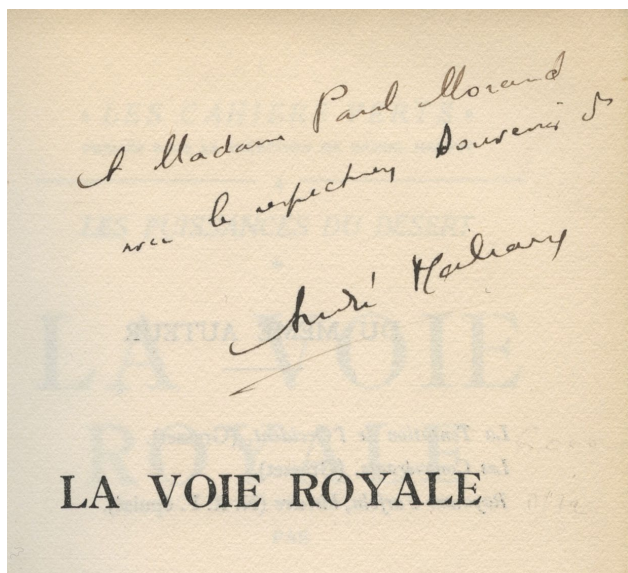 A Madame Paul Morand
avec le respectueux souvenir de
André Malraux
LA VOIE ROYALE